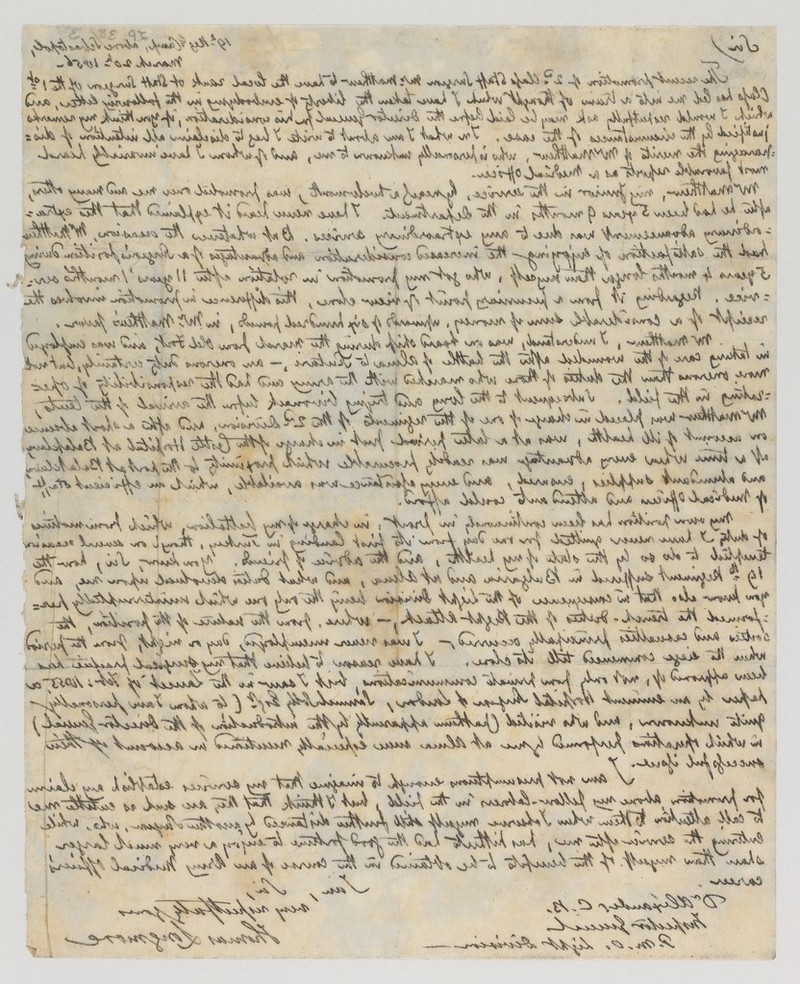 19th Regt. Camp, above Sebastopol,
March 20th 1856.
Sir,
The recent promotion of 2nd Class Staff Surgeon Mr. Matthew to have the local rank of Staff Surgeon of the 1st
Class has led me into a train of thought which I have taken the liberty of embodying in the following letter, and
which I would respectfully ask may be laid before the Director General for his consideration, if you think my remarks
justified by the circumstances of the case. In what I am about to write I beg to disclaim all intention of dis=
=paraging the merits of Mr Matthew, who is personally unknown to me, and of whom I have invariably heard
most favorable reports as a Medical Officer.
Mr Matthew, my junior in the service, was promoted over me and many others,
after he had been 5 years 9 months in the department. I have never heard it explained that this extra=
=ordinary advancement was due to any extraordinary services. But whatever the occasion, Mr Matthew
had the satisfaction of enjoying the increased consideration and advantages of a Surgeon's position during
5 years 4 months longer than myself, who got my promotion in rotation after 11 years 1 month's ser=
=vice. Regarding it from a pecuniary point of view alone, this difference in promotion involves the
receipt of a considerable sum of money, upwards of five hundred pounds, in Mr. Matthew's favor.
Mr Matthew, I understand, was on board ship during the march from Old Fort, and was employed
in taking care of the wounded after the battle of Alma to Scutari, — an onerous duty certainly, but not
more onerous than the duties of those who marched with the army and had the responsibility of oper=
=ating in the field. Subsequent to the long and trying bivouack upon the arrival of the tents,
Mr Matthew was placed in charge of one of the regiments of the 2nd Division, and after a short absence
on account of ill health, was at a later period put in charge of the Castle Hospital at Balaklava
at a time when every advantage was readily procurable which proximity to the port of Balaklava
and abundant supplies, ensured, and every assistance was available, which an efficient staff
of Medical Officers and attendants could afford.
My own position has been continuously in front, in charge of my battalion, which from motives
of duty I have never quitted for one day from its first landing in Turkey, though on several occasions
tempted to do so by the state of my health, and the advice of friends. You know, Sir, how the
19th Regiment suffered in Bulgaria and at Alma, and what duties devolved upon me, and
you know also that in consequence of the Light Division being the only one which uninterruptedly per=
=formed the trench-duties of the Right Attack, — where, from the nature of the position, the
sorties and casualties principally occurred, — I was never unemployed, day or night, from the period
when the siege commenced till its close. I have reason to believe that my surgical practice has
been approved of, not only from private communications, but I saw in the Lancet of Feb: 1855 a
paper by an eminent Hospital Surgeon of London, (to whom I am personally
quite unknown, and who visited Chatham apparently by the introduction of the Director-General)
in which operations performed by me at Alma were especially mentioned on account of their
successful issue.
I am not presumptuous enough to imagine that my services establish any claim
for promotion above my fellow-laborers in the field, but I think that they are such as entitle me
to call attention to them when I observe myself still further distanced by another Surgeon, who, while
entering the service after me, has hitherto had the good fortune to enjoy a very much larger
share than myself of the benefits to be obtained in the course of an Army Medical Officer's
career.
I am,
Sir,
very respectfully yours
Thomas Longmore
Dr Alexander C.B.
Inspector General
P.M.O. Light Division —